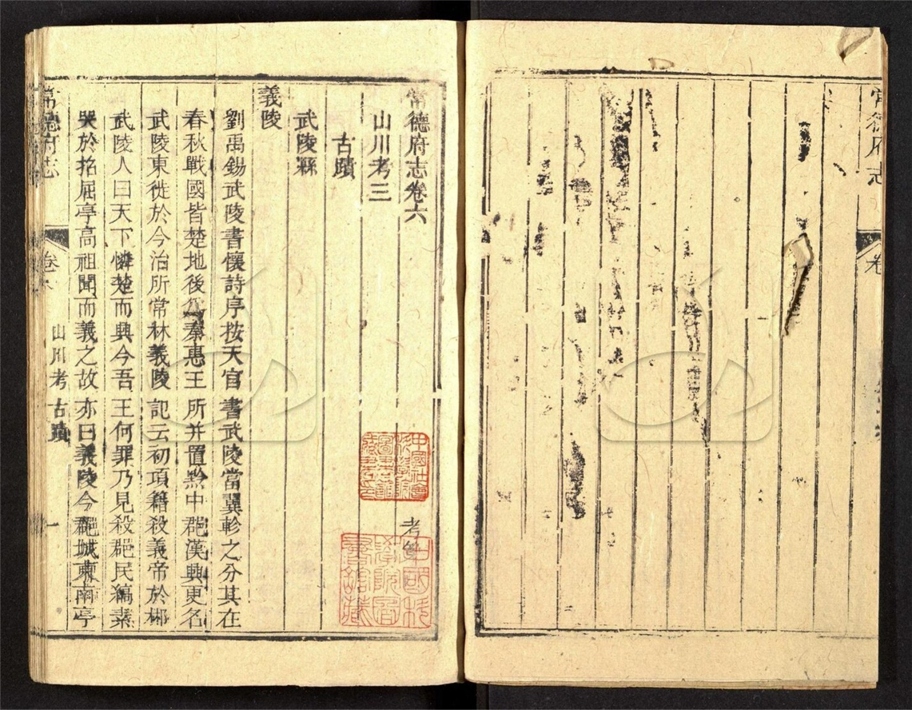 常德府志
卷
常德府志卷六
山川考三
古蹟
武陵縣
義陵
劉禹錫武陵書懷詩序按天官書武陵當翼軫之分其在
春秋戰國皆楚地後為秦惠王所并置黔中郡漢興更名
武陵東徙於今治所常林義陵記云初項籍殺義帝於郴
武陵人曰天下憐楚而興今吾王何罪乃見殺郡民縞素
哭於招屈亭高祖聞而義之故亦曰義陵今郡城東南亭
常德府志
卷六
山川考 古蹟
一